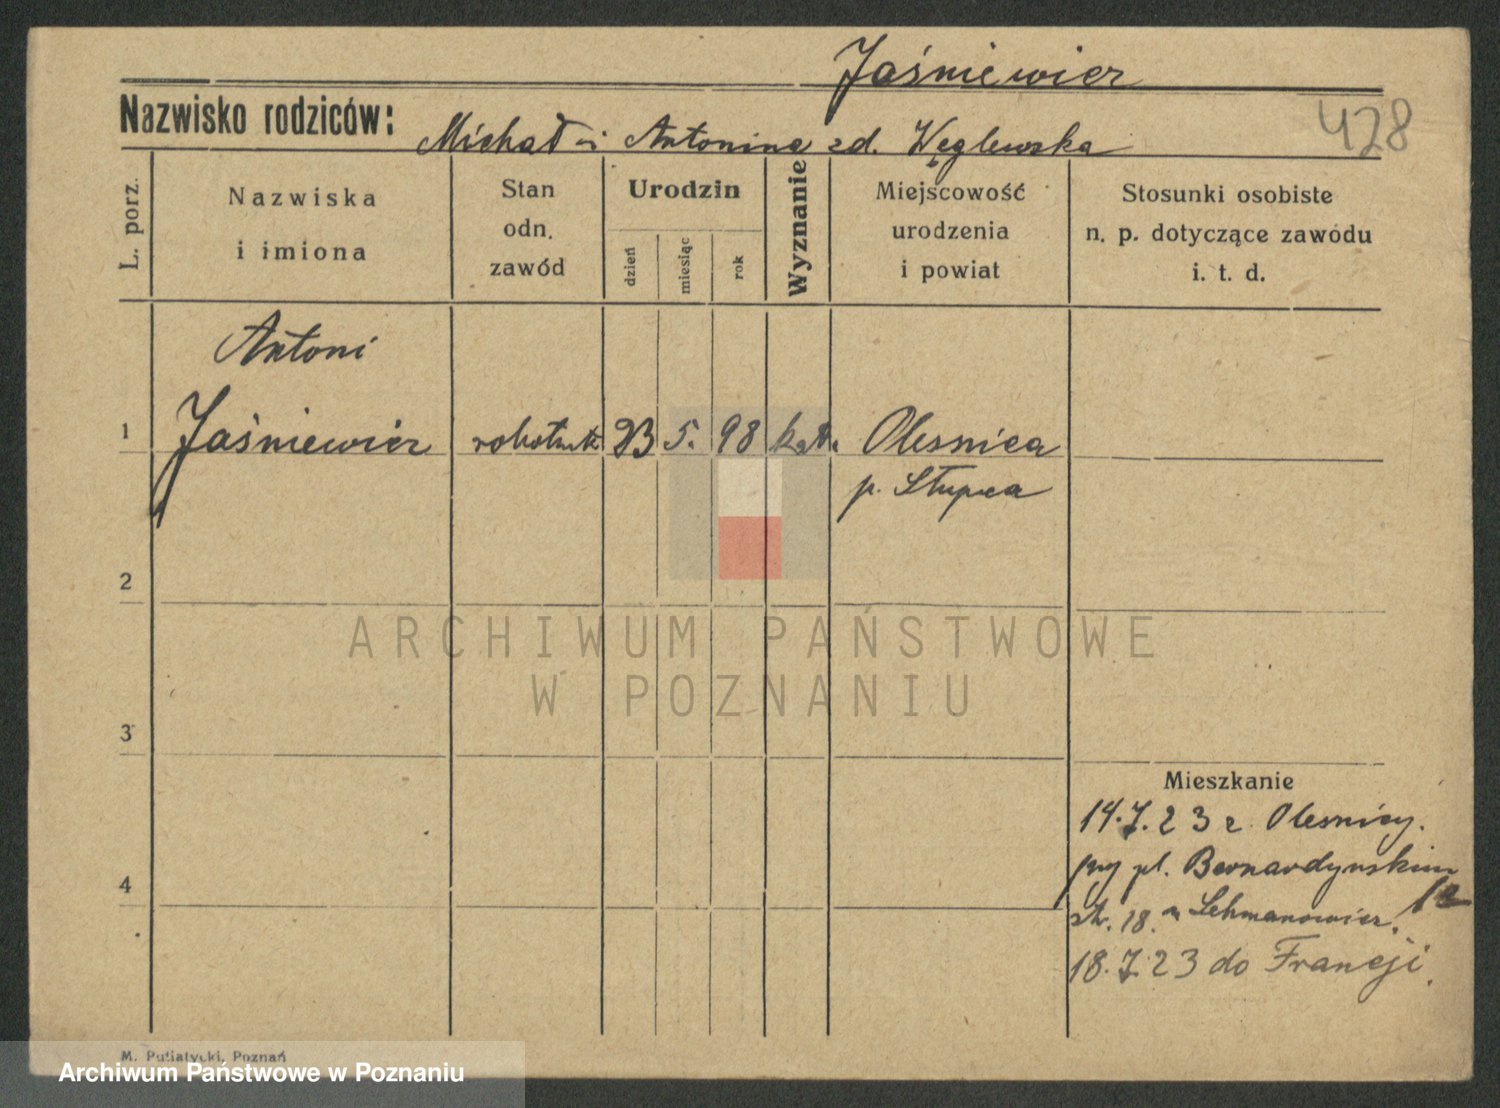 Jaśniewicz
Nazwisko rodziców: Michał i Antonina zd. Węglewska
428
L. porz.
Nazwiska
i imiona
Stan
odn.
zawód
Urodzin
dzień
miesiąc
rok
Wyznanie
Miejscowość
urodzenia
i powiat
Stosunki osobiste
n. p. dotyczące zawodu
i. t. d.
Antoni
1 Jaśniewicz robotnik 23 5. 98 kat. Olesnica
p. Słupca
2
ARCHIWUM PAŃSTWOWE
W POZNANIU
3
Mieszkanie
14.7.23 z Olesnicy.
przy pl. Bernardyńskim
18. Lehmanowicz.
18.7.23 do Francji.
4
M. Putiatycki, Poznań
Archiwum Państwowe w Poznaniu